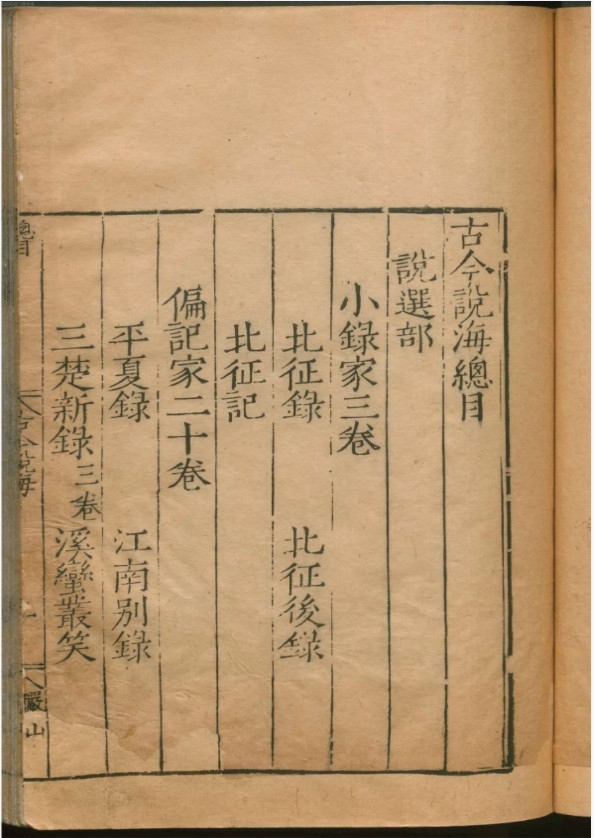 古今說海總目
說選部
小錄家三卷
北征錄 北征後錄
北征記
偏記家二十卷
平夏錄 江南別錄
三楚新錄三卷 溪蠻叢笑
總目 古今說海 儼山